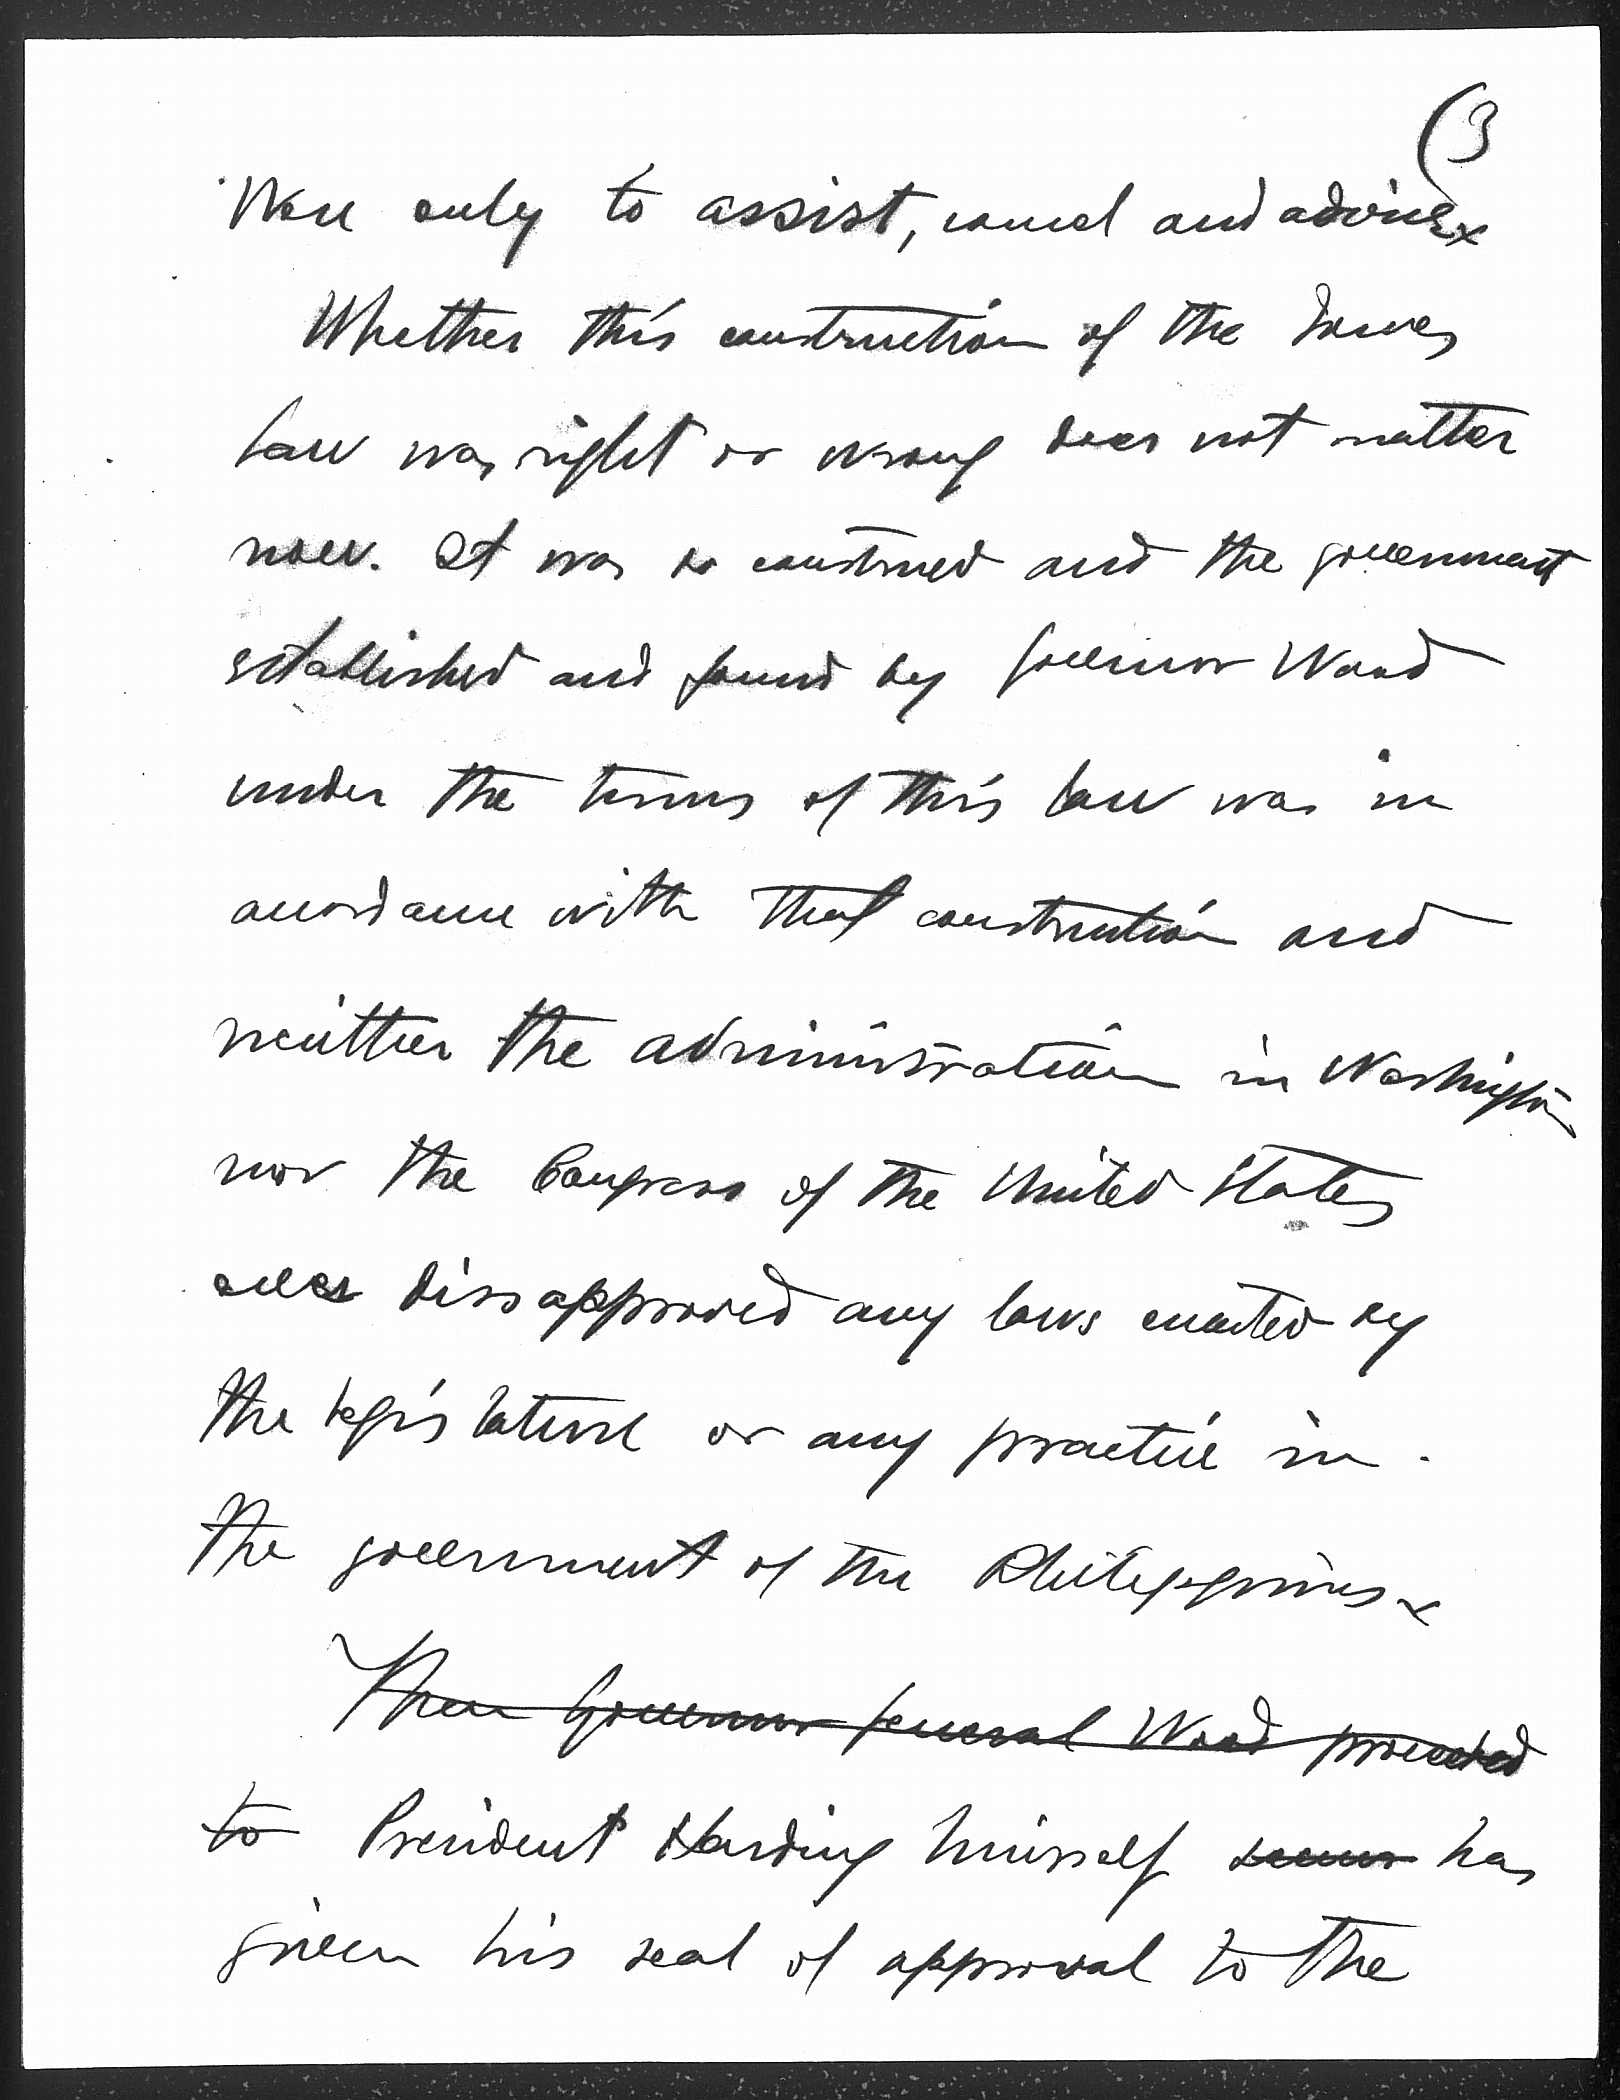 (3
Were only to assist, councel and advise x
Whether this construction of the Jones
Law was right or wrong does not matter
now. It was so construed and the government
established and found by Governor Wood
under the terms of this law was in
accordance with that construction and
neither the administration in Washington
nor the Congress of the United States
ever dissapproved any laws enacted by
the legislature or any practice in
the government of the Philippines x
Then Governor General Wood proceeded
to President Harding himself has
given his seal of approval to the